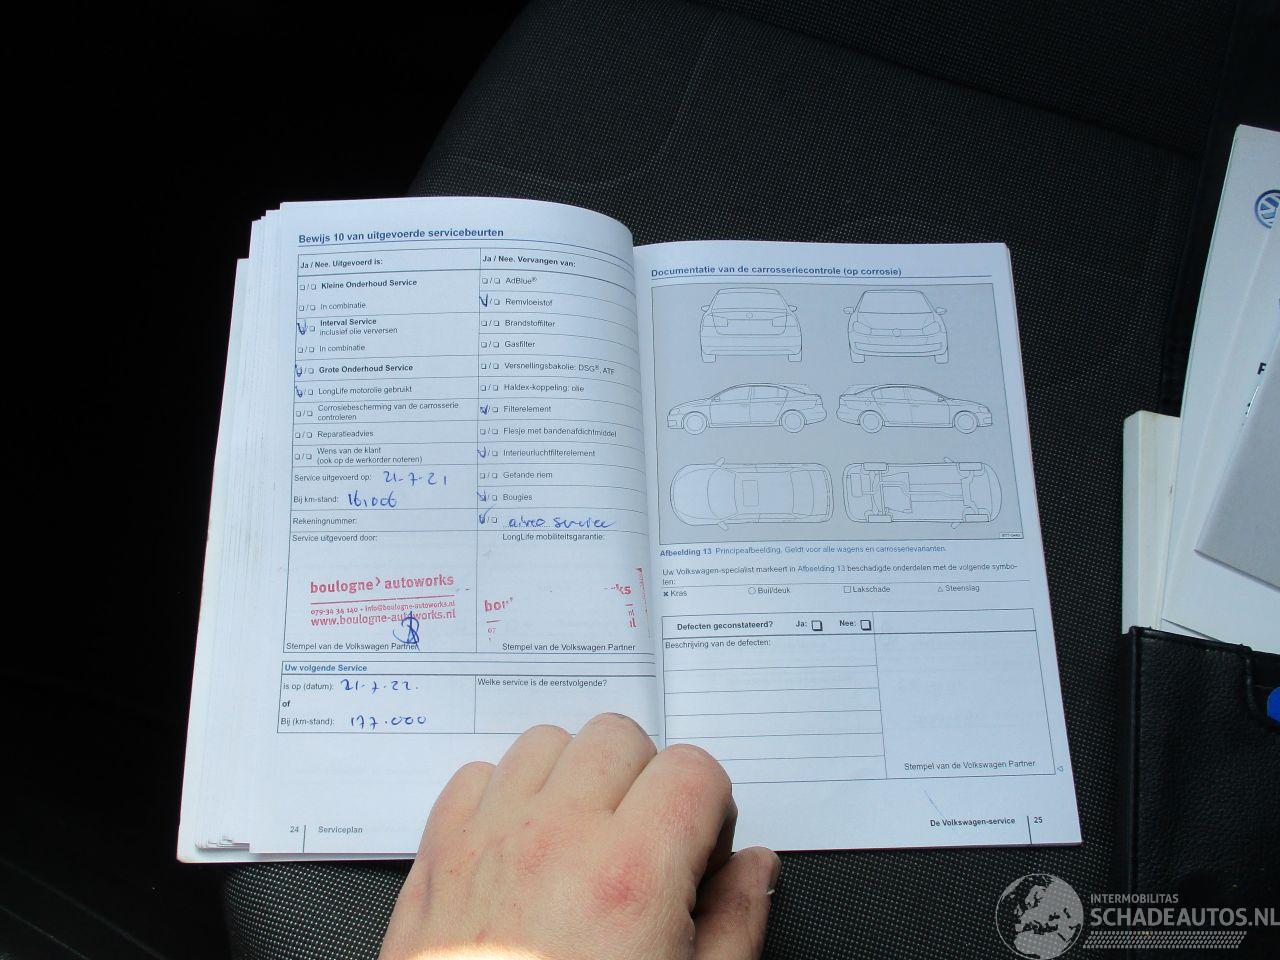 Bewijs 10 van uitgevoerde servicebeurten
Ja / Nee. Uitgevoerd is:
Kleine Onderhoud Service
In combinatie
Interval Service
inclusief olie verversen
In combinatie
Grote Onderhoud Service
LongLife motorolie gebruikt
Corrosiebescherming van de carrosserie
controleren
Reparatieadvies
Wens van de klant
(ook op de werkorder noteren)
Service uitgevoerd op: 21-7-21
Bij km-stand:
Rekeningnummer:
Service uitgevoerd door:
boulogne autoworks
079-34 34 140 • info@boulogne-autoworks.nl
www.boulogne-autoworks.nl
Stempel van de Volkswagen Partner
Ja / Nee. Vervangen van:
AdBlue®
Remvloeistof
Brandstoffilter
Gasfilter
Versnellingsbakolie: DSG®, ATF
Haldex-koppeling: olie
Filterelement
Flesje met bandenafdichtmiddel
Interieurluchtfilterelement
Getande riem
Bougies
airco service
LongLife mobiliteitsgarantie:
Stempel van de Volkswagen Partner
Uw volgende Service
is op (datum): 21-7-22.
of
Bij (km-stand): 177.000
Welke service is de eerstvolgende?
24 Serviceplan
Documentatie van de carrosseriecontrole (op corrosie)
Afbeelding 13 Principeafbeelding. Geldt voor alle wagens en carrosserievarianten.
Uw Volkswagen-specialist markeert in Afbeelding 13 beschadigde onderdelen met de volgende symbo-
len:
Kras Buil/deuk Lakschade Steenslag
Defecten geconstateerd? Ja: Nee:
Beschrijving van de defecten:
Stempel van de Volkswagen Partner
De Volkswagen-service 25
INTERMOBILITAS
SCHADEAUTOS.NL